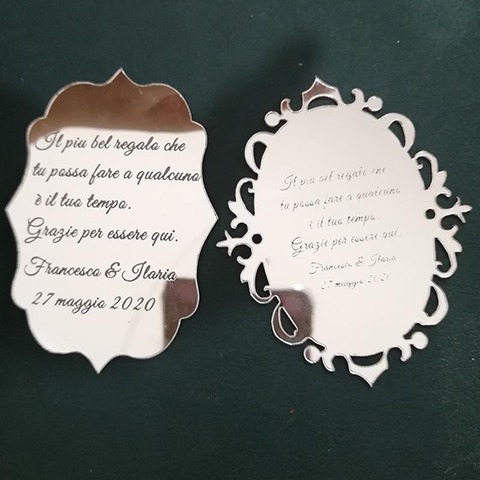 Il più bel regalo che
tu possa fare a qualcuno
è il tuo tempo.
Grazie per essere qui.
Francesco & Ilaria
27 maggio 2020
Il più bel regalo che
tu possa fare a qualcuno
è il tuo tempo.
Grazie per essere qui.
Francesco & Ilaria
27 maggio 2020